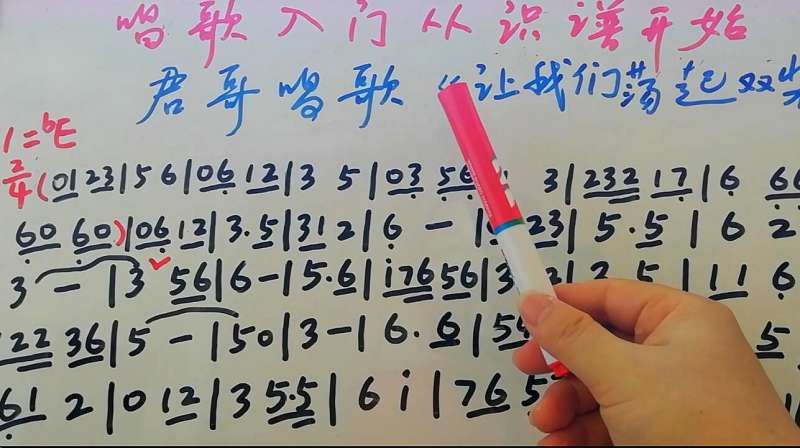 唱歌入门从识谱开始
君哥唱歌《让我们荡起双桨
1=ᵇE
2/4 (0123|5 6|06 12|3 5|03 56 3|232 17|6 66
60 60)|06 12|3.5|31 2|6 －| 23|5.5|6 2
3 －|3 56|6－|5.6|i76 56|3 3|2 5|11 6
122 36|5 －|50|3－|6.6|54 5
61 2|0 12|3 5.5|6 i|76 5